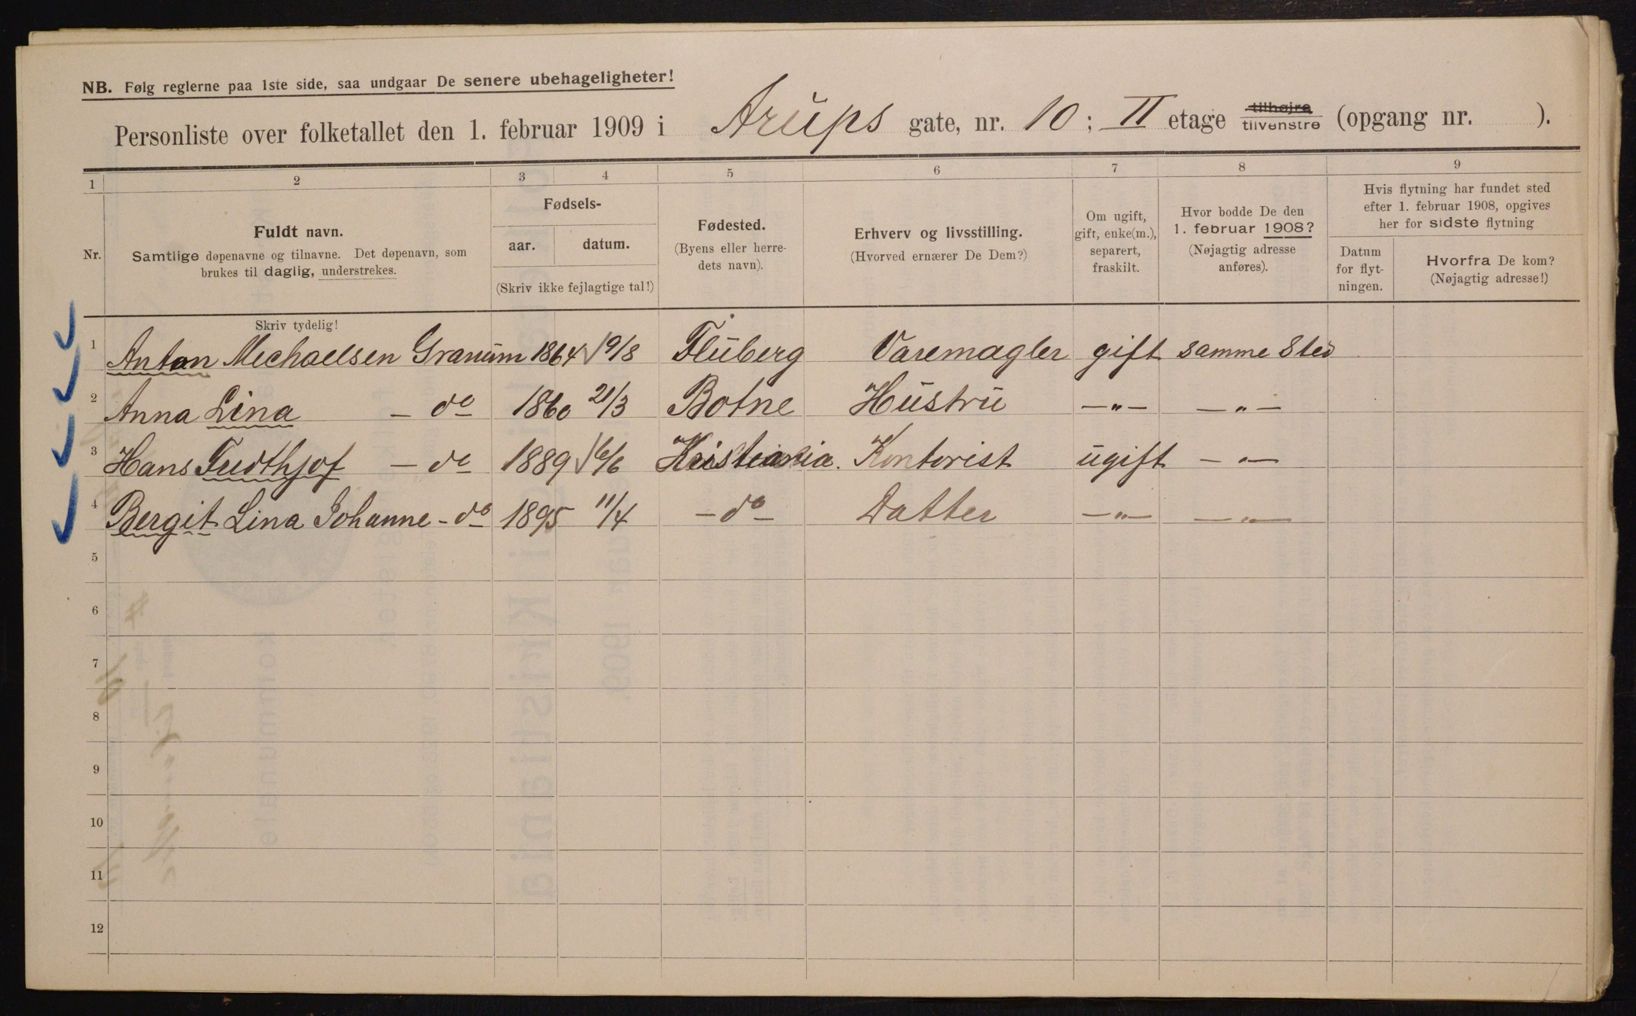 NB. Følg reglerne paa 1ste side, saa undgaar De senere ubehageligheter!
Personliste over folketallet den 1. februar 1909 i Arups gate, nr. 10; II etage tilhøjre tilvenstre (opgang nr. ).
1 2 3 4 5 6 7 8 9
Nr.
Fuldt navn.
Samtlige døpenavne og tilnavne. Det døpenavn, som
brukes til daglig, understrekes.
Fødsels-
aar. datum.
(Skriv ikke fejlagtige tal!)
Fødested.
(Byens eller herre-
dets navn).
Erhverv og livsstilling.
(Hvorved ernærer De Dem?)
Om ugift,
gift, enke(m.),
separert,
fraskilt.
Hvor bodde De den
1. februar 1908?
(Nøjagtig adresse
anføres).
Hvis flytning har fundet sted
efter 1. februar 1908, opgives
her for sidste flytning
Datum
for flyt-
ningen.
Hvorfra De kom?
(Nøjagtig adresse!)
Skriv tydelig!
1 Anton Mechaelsen Granum 1864 19/8 Fluberg Varemægler gift samme Sted
2 Anna Lina - do 1860 21/3 Botne Hustru -"- -"-
3 Hans Fridthjof - do 1889 16/6 Kristiania. Kontorist ugift -"-
4 Bergit Lina Johanne - do 1895 11/4 - do - Datter -"- -"-
5
6
7
8
9
10
11
12